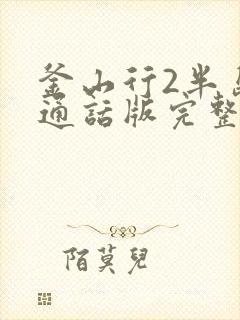 釜山行2半
通話版完整
陌莫兒